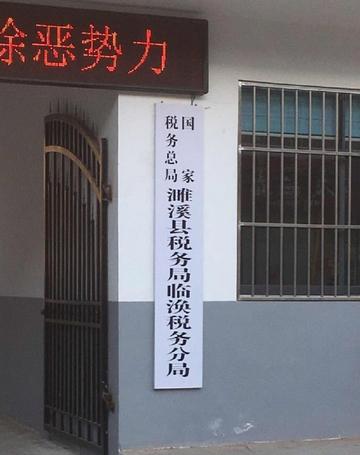 除恶势力
国家税务总局濉溪县税务局临涣税务分局